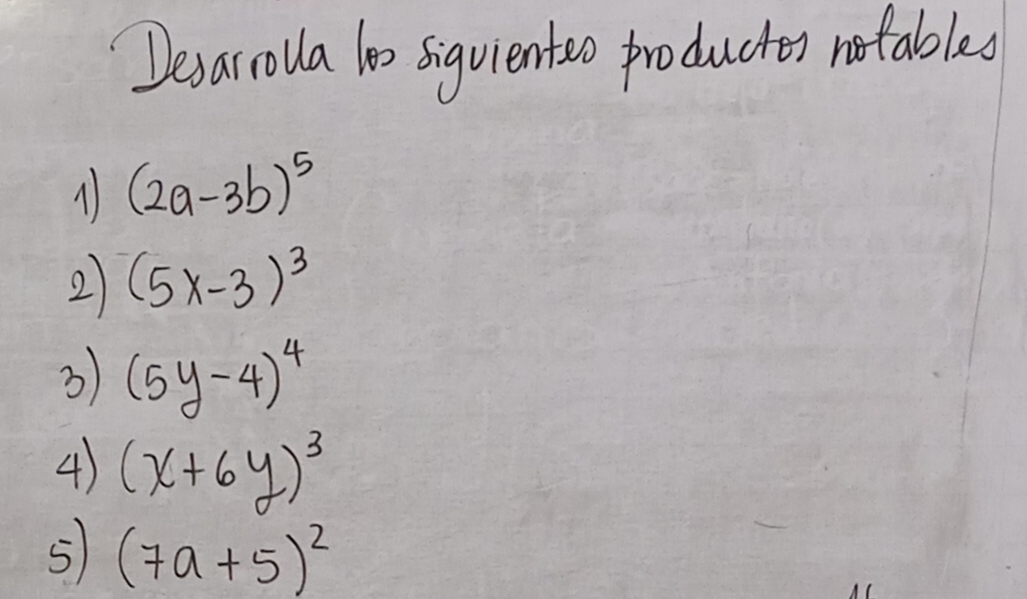 Desarrolla los siguientes productos notables
1) (2a-3b)⁵
2) (5x-3)³
3) (5y-4)⁴
4) (x+6y)³
5) (7a+5)²